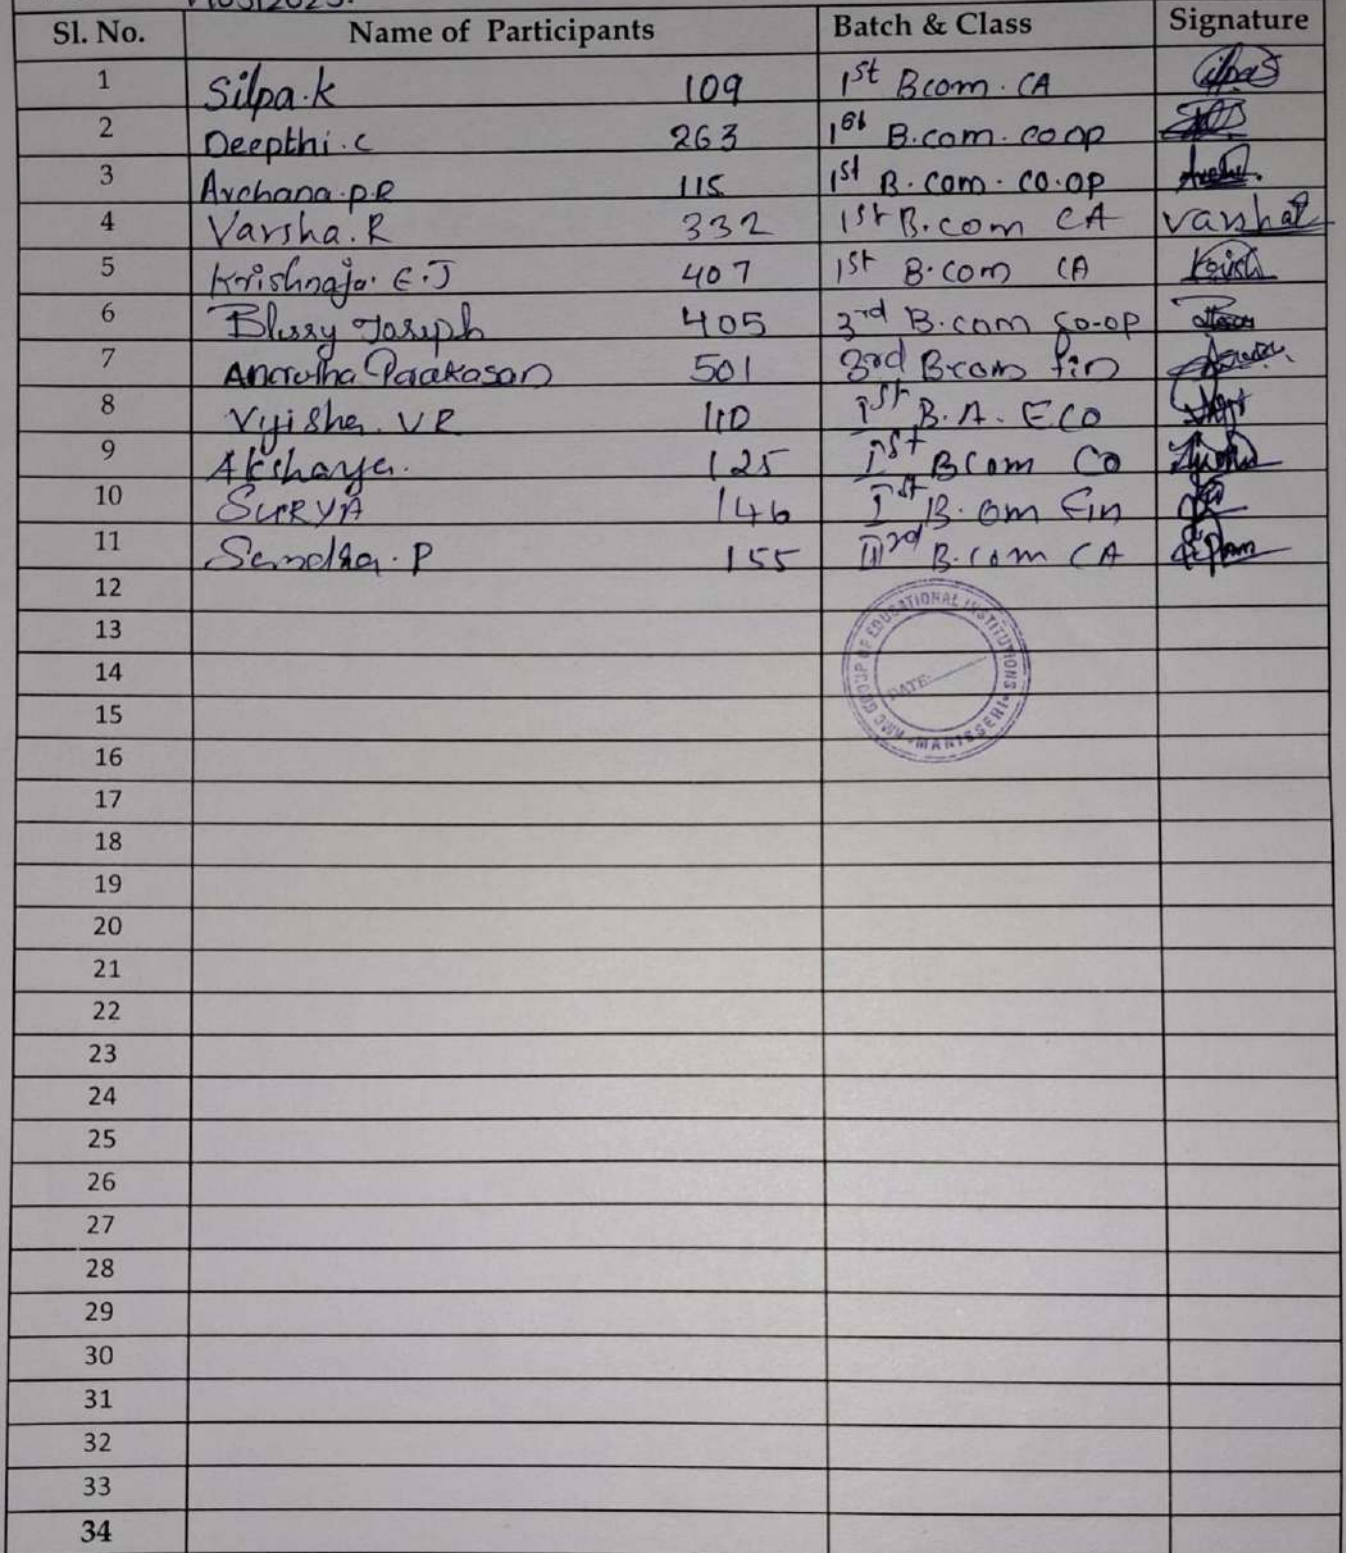 Sl. No. Name of Participants Batch & Class Signature
1 Silpa.k 109 1st Bcom. CA
2 Deepthi.c 263 1st B.com.co op
3 Archana.p.R 115 1st B.com.co.op
4 Varsha.R 332 1st B.com CA Varsha
5 Krishnaja. E.J 407 1st B.com CA Krish
6 Blessy Joseph 405 3rd B.com Co-op
7 Anrutha Prakasan 501 3rd B.com fin
8 Vijisha. V R 110 Ist B.A. ECO
9 Akshaya. 125 Ist BCom Co
10 SURYA 146 Ist B.om Fin
11 Sandra.P 155 IIIrd B.com CA
12
13
14
15
16
17
18
19
20
21
22
23
24
25
26
27
28
29
30
31
32
33
34
GROUP OF EDUCATIONAL INSTITUTIONS
MANISSERI
DATE: